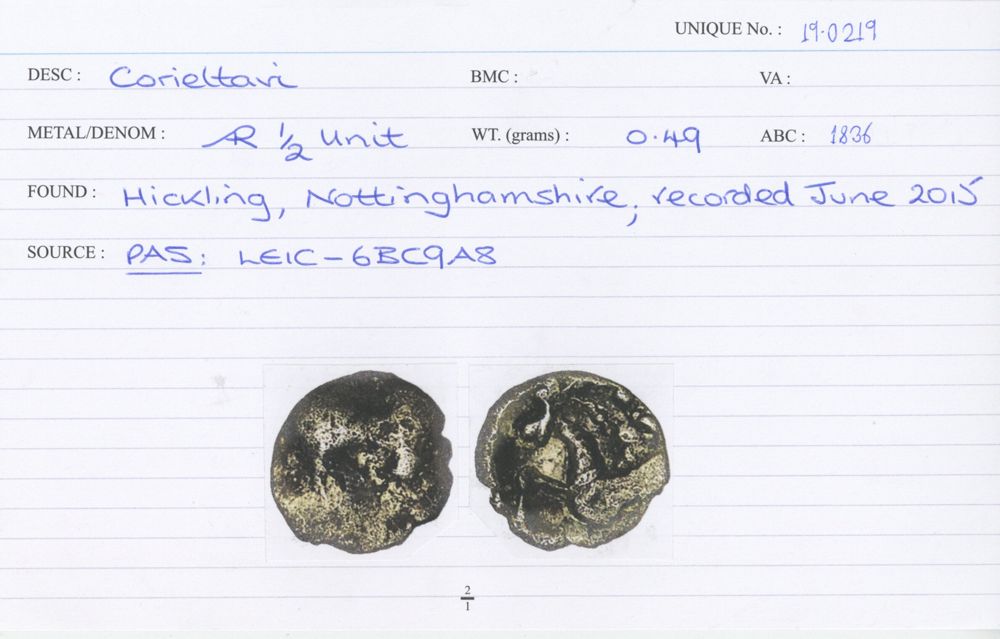 UNIQUE No. : 19.0219
DESC : Corieltavi BMC : VA :
METAL/DENOM : AR 1/2 Unit WT. (grams) : 0.49 ABC : 1836
FOUND : Hickling, Nottinghamshire; recorded June 2015
SOURCE : PAS: LEIC-6BC9A8
2/1